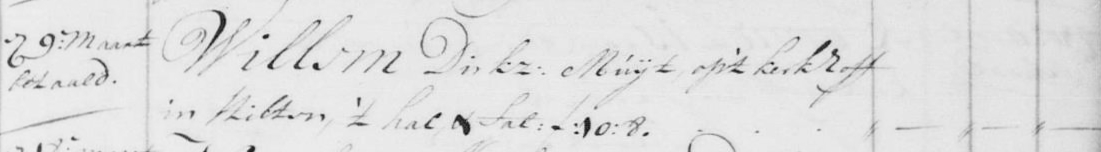 d 9:' Maart
betaald.
Willem Dirkz: Muyt, op't kerkhoff
in Hilton, 't hal, & Sal: £:10:8. " — " — " —